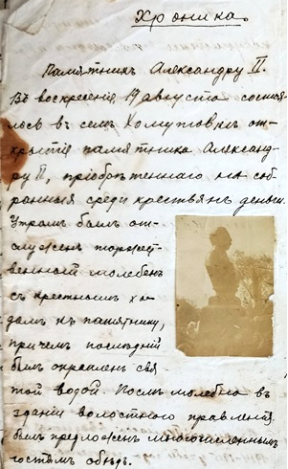 Хроника.
Памятникъ Александру II.
Въ воскресенiе 19 августа состоя-
лось въ селѣ Хомутовкѣ от-
крытiе памятника Александ-
ру II, прiобрѣтеннаго на соб-
ранныя среди крестьянъ деньги.
Утромъ былъ от-
служенъ торжест-
венный молебенъ
съ крестнымъ хо-
домъ къ памятнику,
причемъ послѣднiй
былъ окропленъ свя
той водой. Послѣ молебна въ
зданiи волостного правленiя
былъ предложенъ многочисленнымъ
гостямъ обѣдъ.